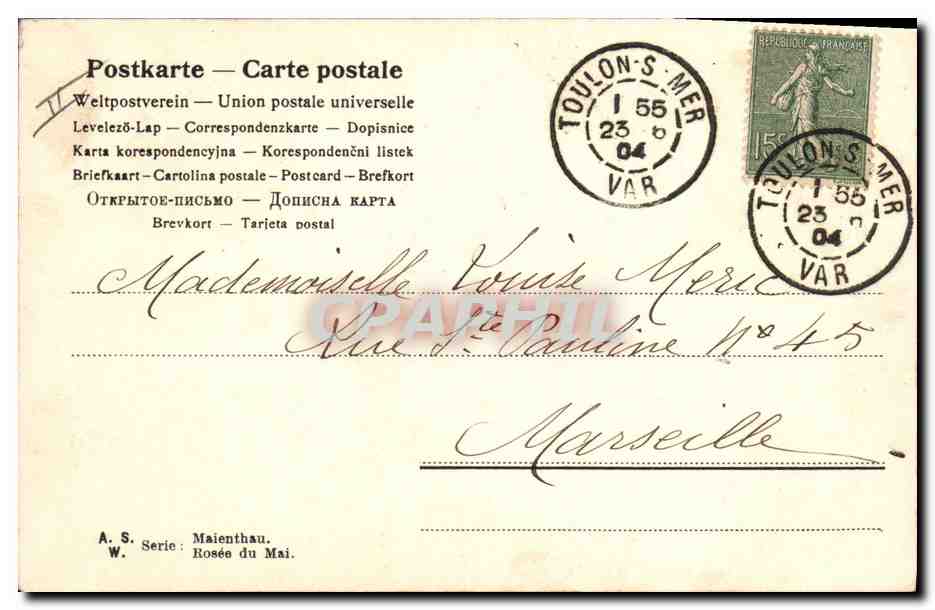 II
Postkarte — Carte postale
Weltpostverein — Union postale universelle
Levelező-Lap — Correspondenzkarte — Dopisnice
Karta korespondencyjna — Korespondenční listek
Briefkaart — Cartolina postale — Postcard — Brefkort
Открытое-письмо — Дописна карта
Brevkort — Tarjeta postal
TOULON-S-MER
1 55
23 6
04
VAR
REPUBLIQUE FRANÇAISE
15c
TOULON-S-MER
1 55
23
04
VAR
Mademoiselle Louise Meric
CPAPHIL
Rue Ste Pauline No 45
Marseille
A. S. W. Serie: Maienthau.
Rosée du Mai.